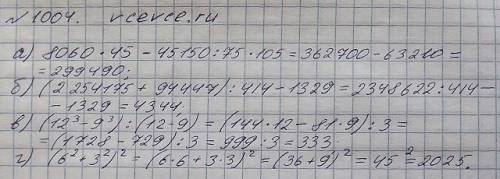 №1004. vcevce.ru
а) 8060 · 45 - 45150 : 75 · 105 = 362700 - 63210 =
= 299490;
б) (2254175 + 94447) : 414 - 1329 = 2348622 : 414 -
- 1329 = 4344.
в) (12³ - 9³) : (12 - 9) = (144 · 12 - 81 · 9) : 3 =
= (1728 - 729) : 3 = 999 : 3 = 333.
г) (6² + 3²)² = (6 · 6 + 3 · 3)² = (36 + 9)² = 45² = 2025.